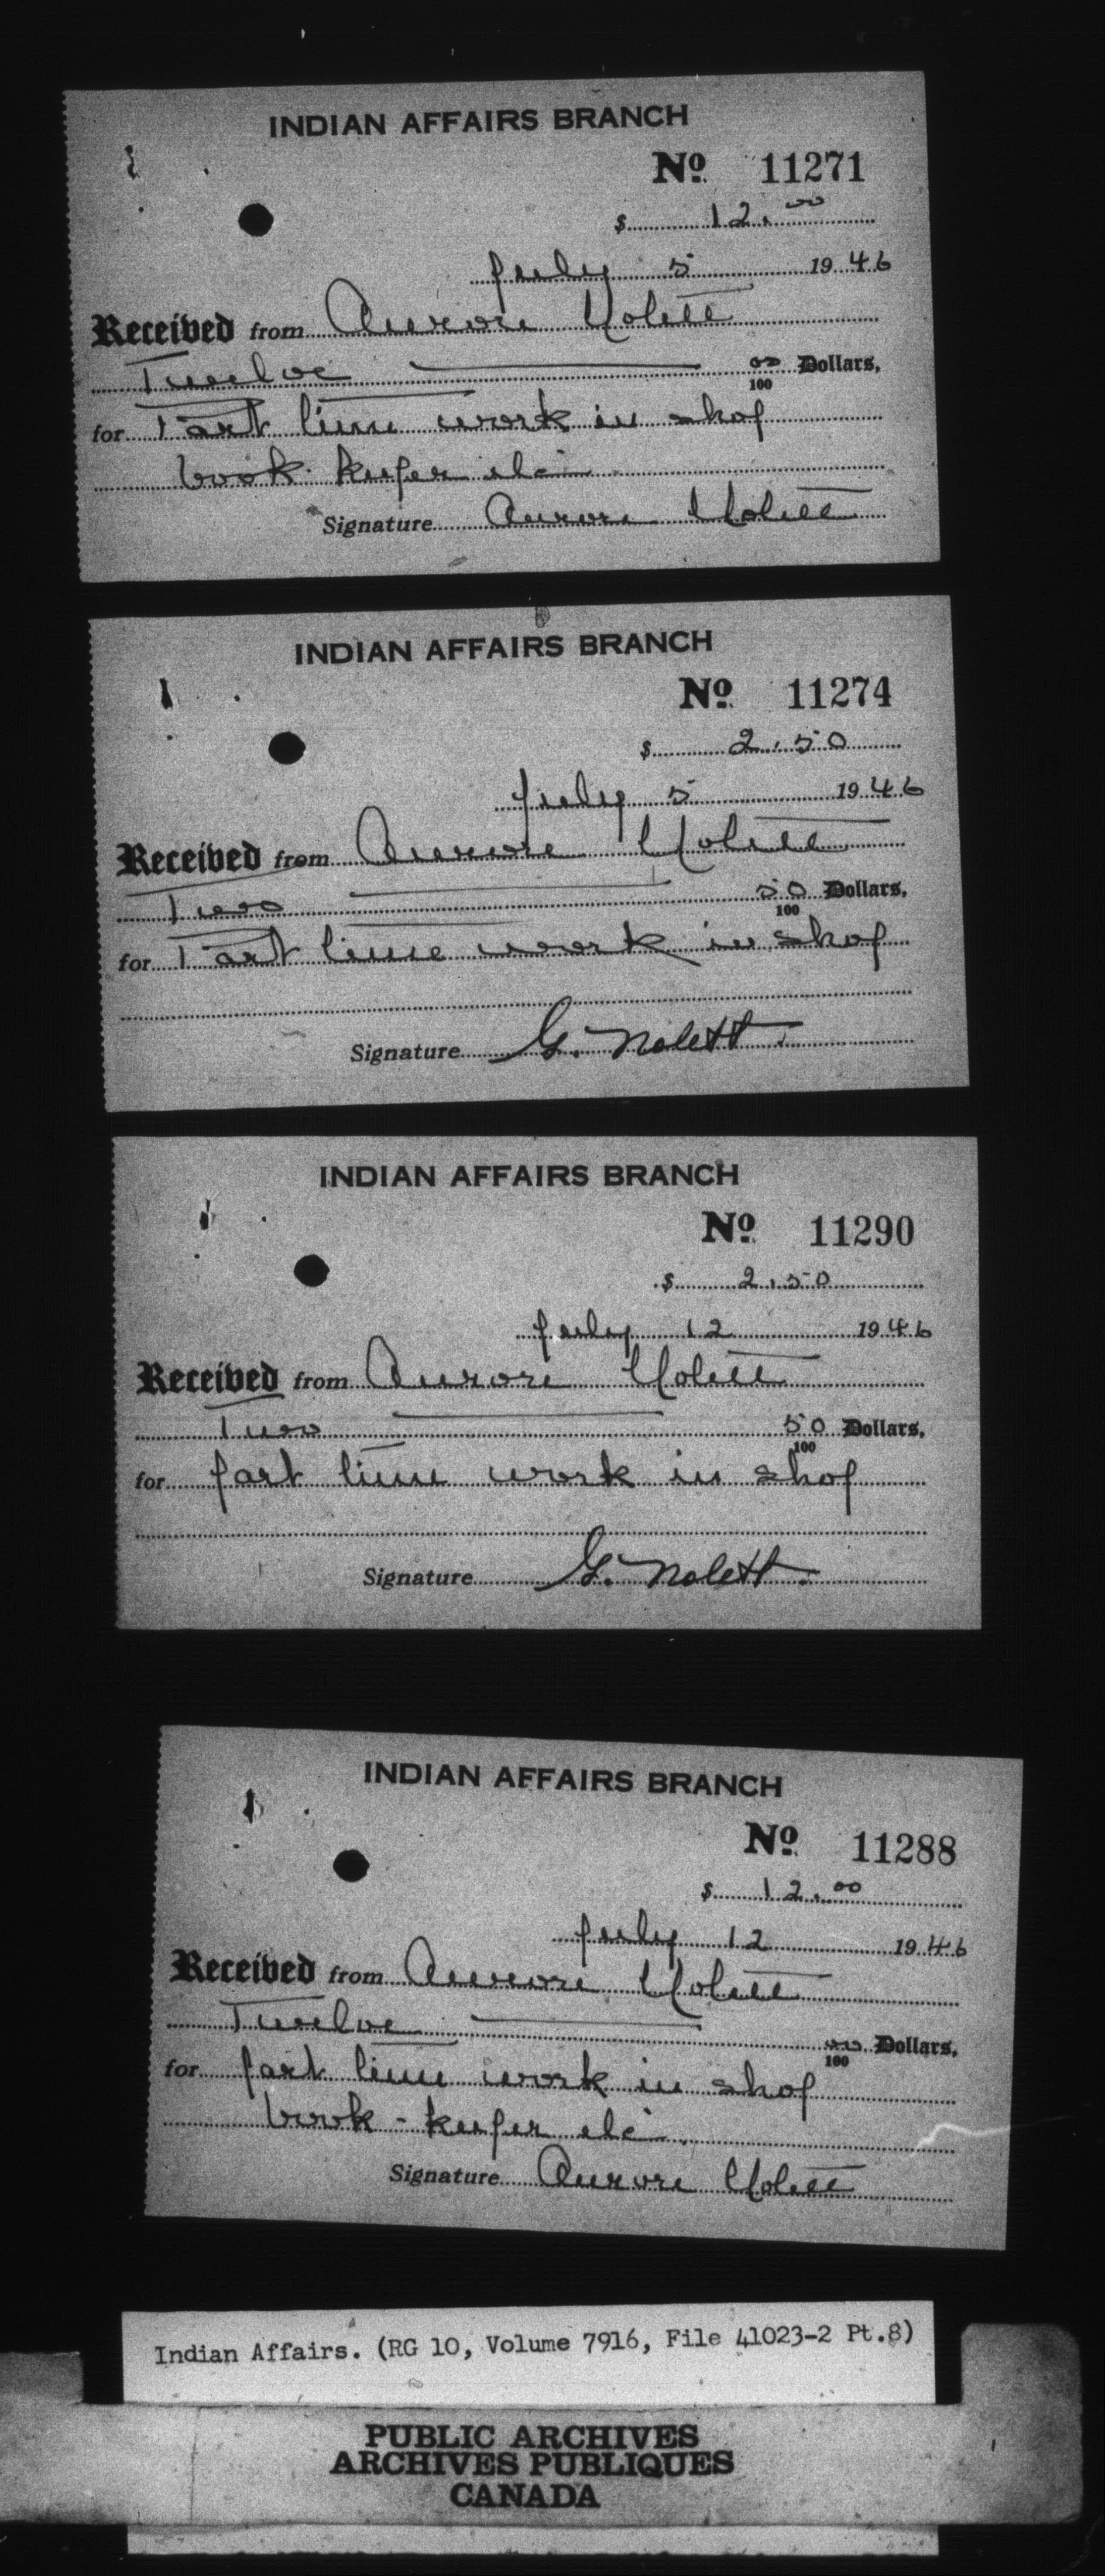 INDIAN AFFAIRS BRANCH
No. 11271
$ 12.00
July 5 1946
Received from Aurore Nolett
Twelve 00/100 Dollars,
for Part time work in shop
book keeper etc
Signature Aurore Nolett
INDIAN AFFAIRS BRANCH
No. 11274
$ 2.50
July 5 1946
Received from Aurore Nolett
Two 50/100 Dollars,
for Part time work in shop
Signature G. Nolett.
INDIAN AFFAIRS BRANCH
No. 11290
$ 2.50
July 12 1946
Received from Aurore Nolett
Two 50/100 Dollars,
for part time work in shop
Signature G. Nolett.
INDIAN AFFAIRS BRANCH
No. 11288
$ 12.00
July 12 1946
Received from Aurore Nolett
Twelve 00/100 Dollars,
for part time work in shop
book-keeper etc
Signature Aurore Nolett
Indian Affairs. (RG 10, Volume 7916, File 41023-2 Pt.8)
PUBLIC ARCHIVES
ARCHIVES PUBLIQUES
CANADA